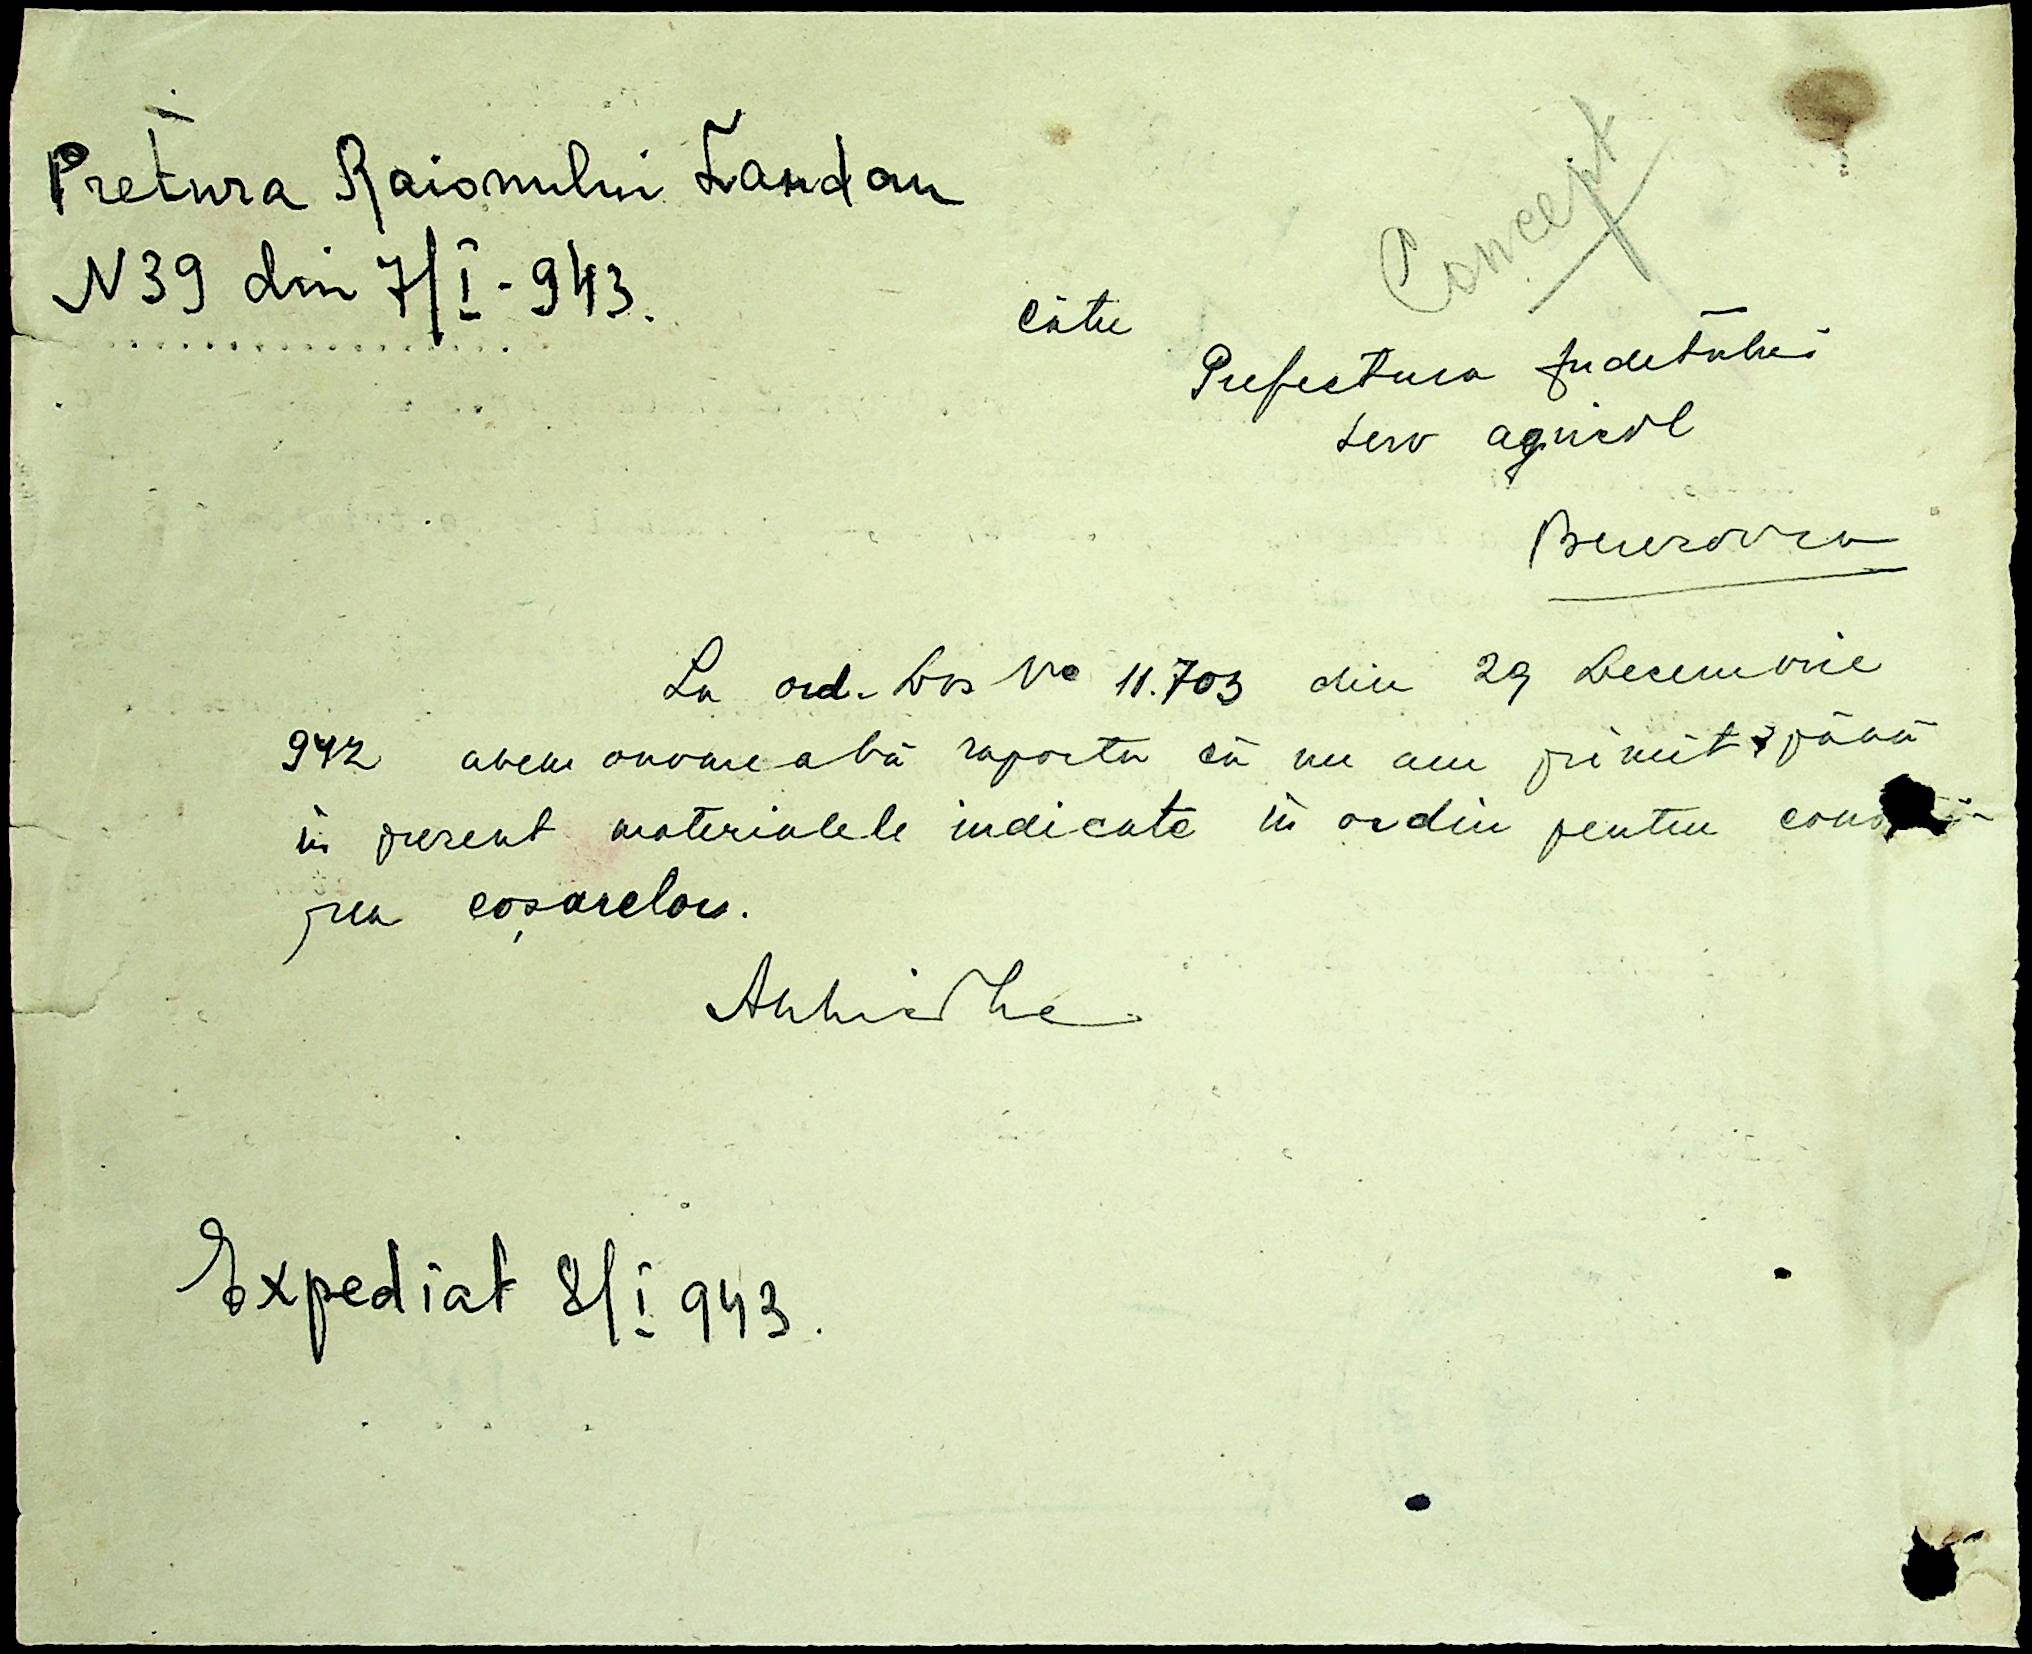 Pretura Raionului Landau
N 39 din 7/I - 943.
Concept
către
Prefectura Judetului
serv agricol
Berezovca
La ord. Dvs No 11.703 din 29 Decemvrie
942 avem onoarea a vă raporta că nu am primit până
în prezent materialele indicate în ordin pentru
coșarelor.
Expediat 8/I 943.